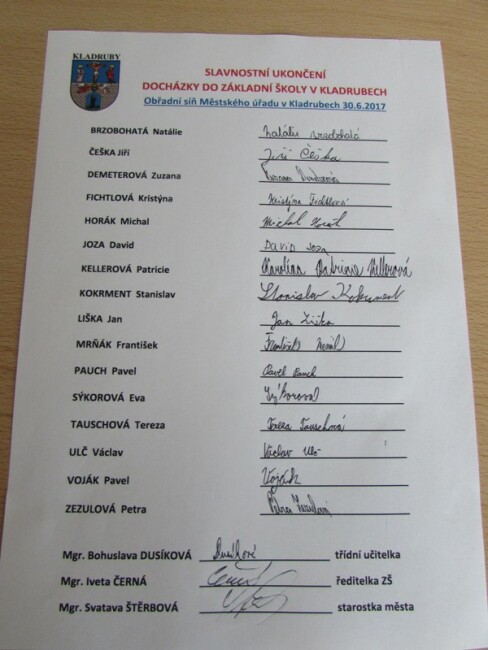 KLADRUBY
SLAVNOSTNÍ UKONČENÍ
DOCHÁZKY DO ZÁKLADNÍ ŠKOLY V KLADRUBECH
Obřadní síň Městského úřadu v Kladrubech 30.6.2017
BRZOBOHATÁ Natálie Natálie Brzobohatá
ČEŠKA Jiří Jiří Češka
DEMETEROVÁ Zuzana
FICHTLOVÁ Kristýna Kristýna Fichtlová
HORÁK Michal Michal Horák
JOZA David David Joza
KELLEROVÁ Patricie Karolína Patricie Kellerová
KOKRMENT Stanislav Stanislav Kokrment
LIŠKA Jan Jan Liška
MRŇÁK František František
PAUCH Pavel Pavel Pauch
SÝKOROVÁ Eva Sýkorová
TAUSCHOVÁ Tereza Tereza Tauschová
ULČ Václav Václav Ulč
VOJÁK Pavel Voják
ZEZULOVÁ Petra Petra Zezulová
Mgr. Bohuslava DUSÍKOVÁ Dusíková třídní učitelka
Mgr. Iveta ČERNÁ ředitelka ZŠ
Mgr. Svatava ŠTĚRBOVÁ starostka města